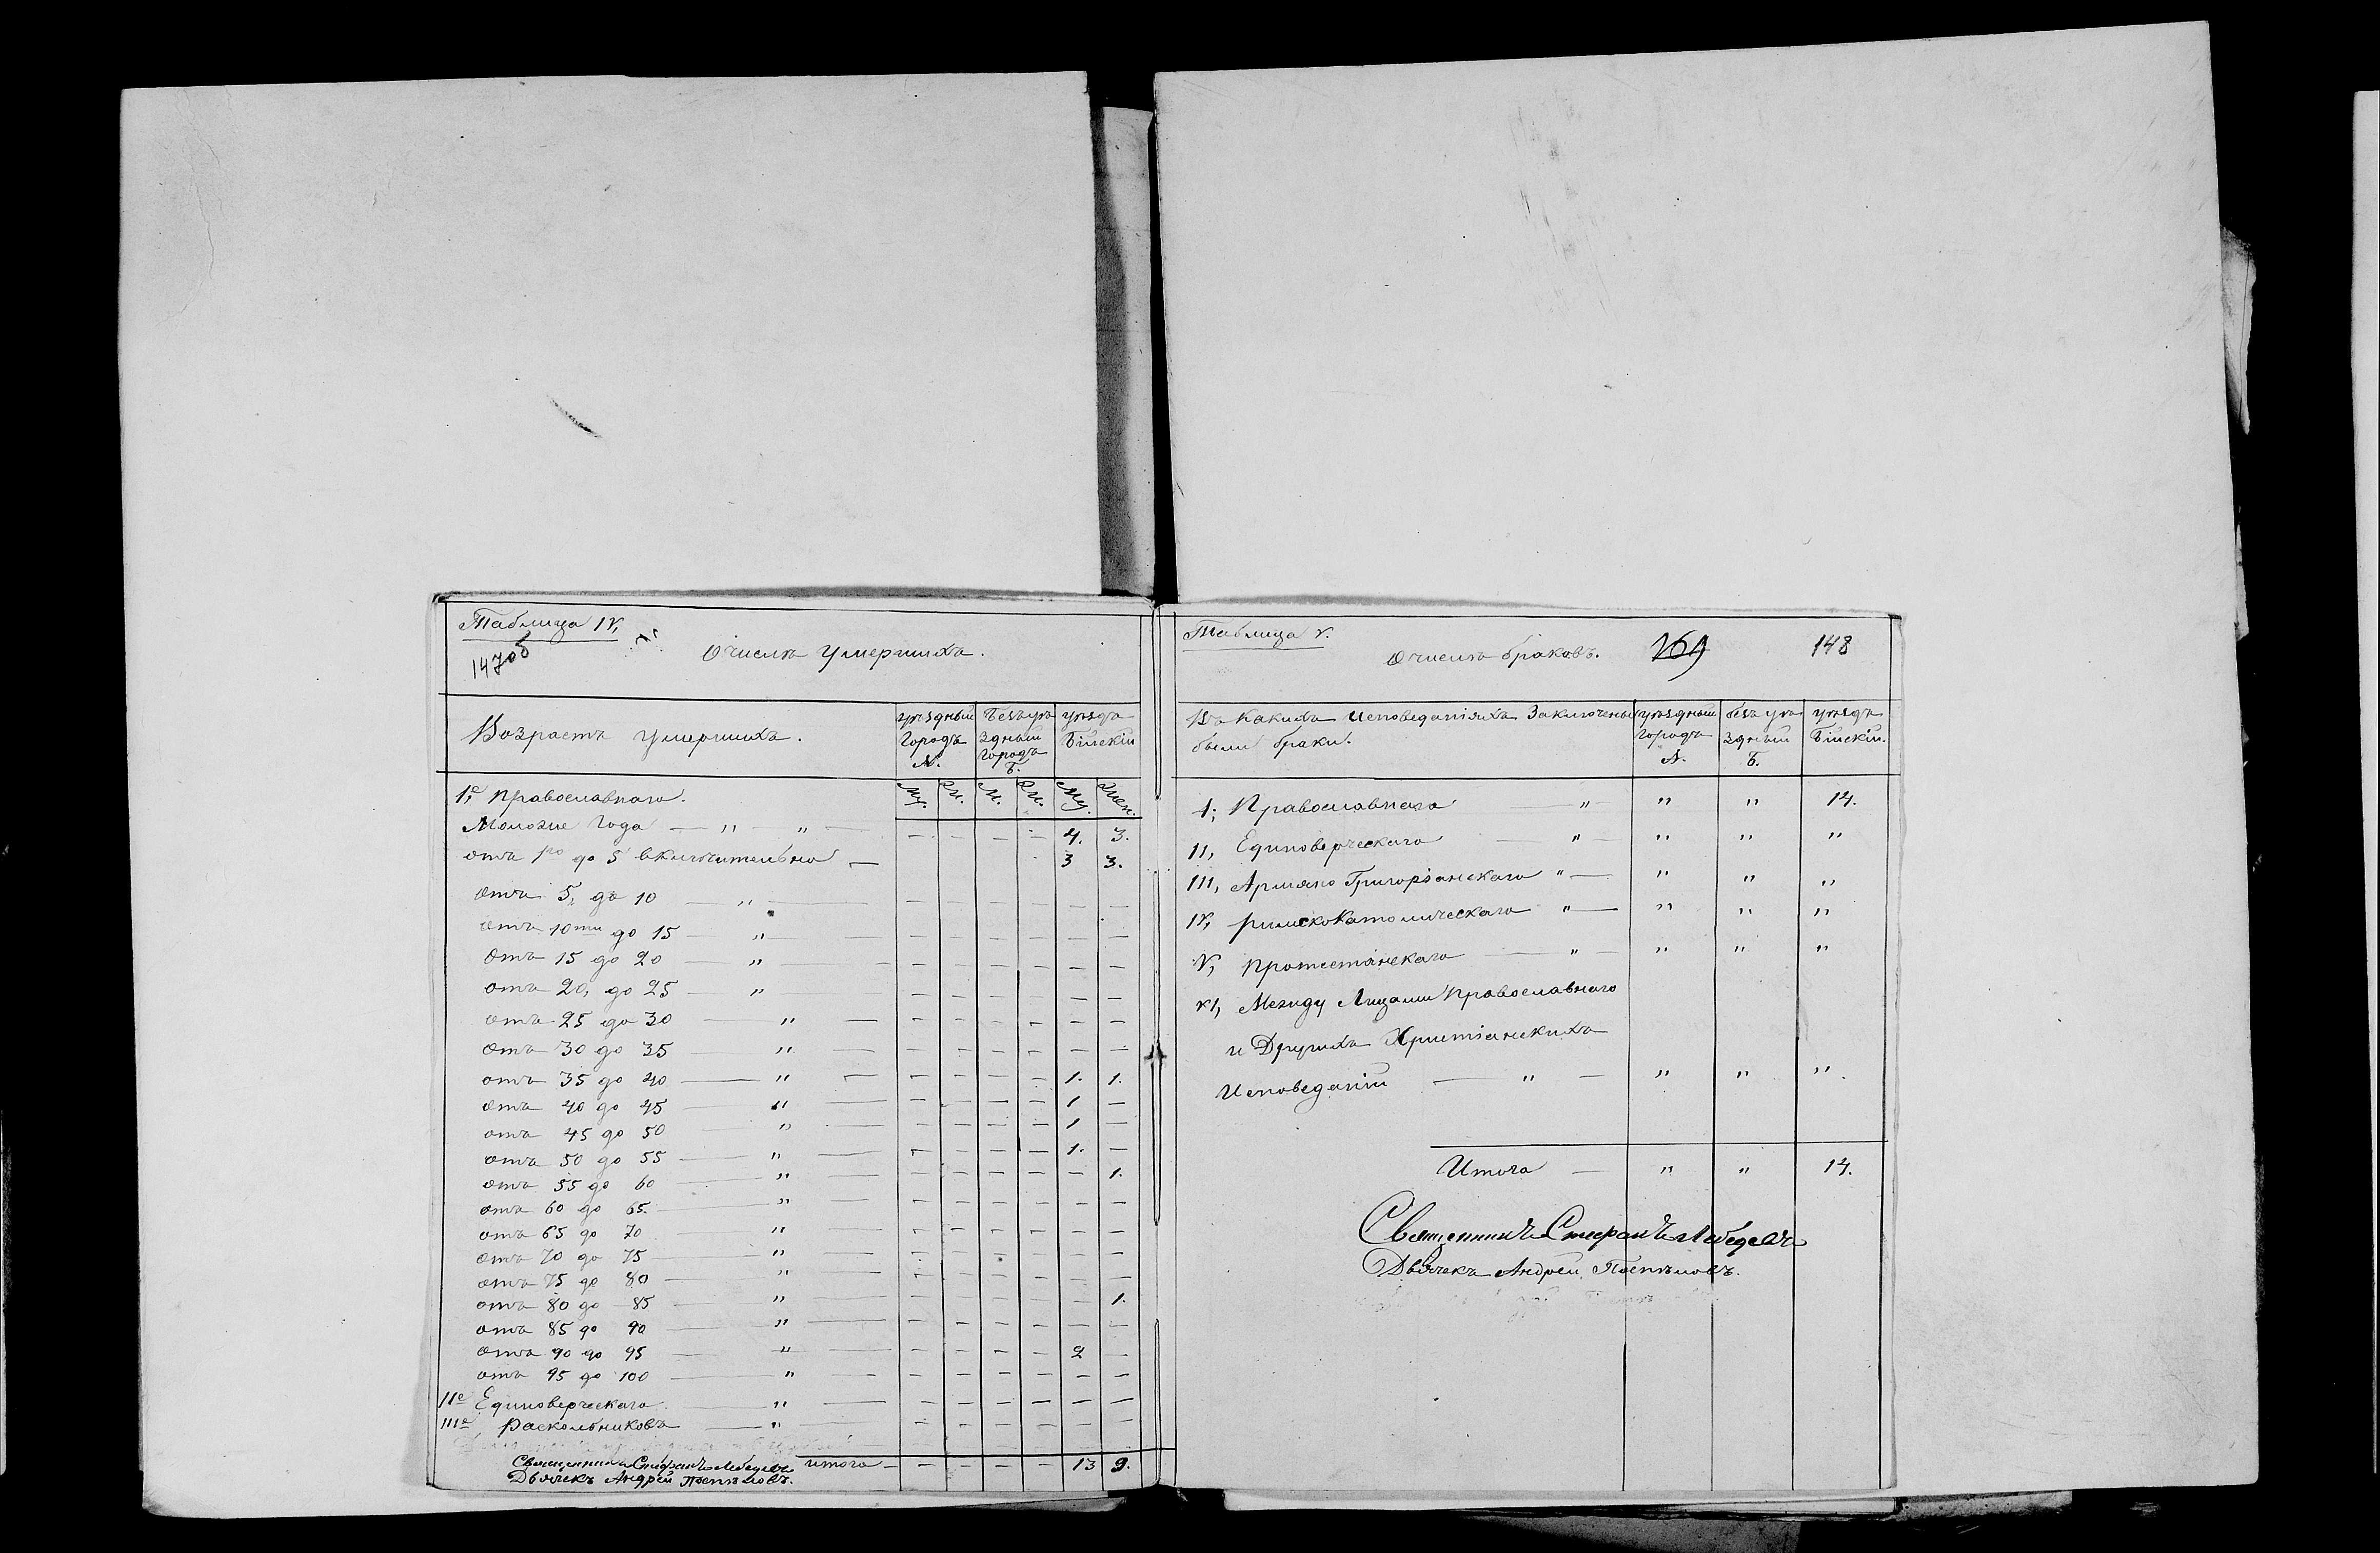 Таблица IV,
147об
О числѣ умершихъ.
Возрастъ умершихъ.
уѣздный Городъ А.
Безъуѣздный Городъ Б.
уѣздъ Бійскій
Му. Жн. М. Жн. Му. Жен.
1,е Православнаго.
Моложе Года — " — " — — — — — 4. 3.
отъ 1го до 5 включительно — 3 3.
отъ 5, до 10 — " — — — — — — —
отъ 10ти до 15 — " — — — — — — —
отъ 15 до 20 — " — — — — — — —
отъ 20, до 25 — " — — — — — — —
отъ 25 до 30 — " — — — — — — —
отъ 30 до 35 — " — — — — — — —
отъ 35 до 40 — " — — — — — 1. 1.
отъ 40 до 45 — " — — — — — 1 —
отъ 45 до 50 — " — — — — — 1 —
отъ 50 до 55 — " — — — — — 1. —
отъ 55 до 60 — " — — — — — — 1.
отъ 60 до 65. — " — — — — — — —
отъ 65 до 70 — " — — — — — — —
отъ 70 до 75 — " — — — — — — —
отъ 75 до 80 — " — — — — — — —
отъ 80 до 85 — " — — — — — — 1.
отъ 85 до 90 — " — — — — — — —
отъ 90 до 95 — " — — — — — 2 —
отъ 95 до 100 — " — — — — — — —
IIе Единоверческаго — " — — — — — — —
IIIе, Раскольниковъ — " — — — — — — —
Священникъ Стефанъ Лебедевъ итого — — — — — 13 9.
Дьячекъ Андрей Поспѣловъ.
Таблица V.
О числѣ браковъ. 169 148
Въ какихъ Исповеданіяхъ Заключены были браки.
уѣздный Городъ А.
безъ уѣздный Б.
уѣздъ Бійскій.
I; Православнаго — " — " " 14.
II, Единоверческаго — " — " " "
III, Армяно Григоріанскаго " — " " "
IV, римскоКатолическаго " — " " "
V, протестанскаго — " — " " "
VI, Между Лицами Православнаго
и Другихъ Христіанскихъ
Исповеданій — " — " " "
Итого — " " 14.
Священникъ Стефанъ Лебедевъ
Дьячекъ Андрей Поспѣловъ.